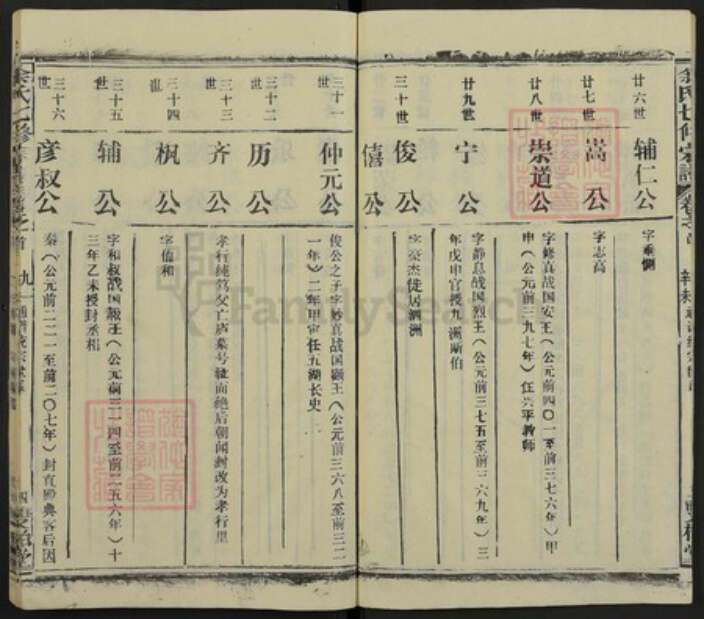 余氏七修宗譜
廿六世
辅仁公
字秉恻
廿七世
嵩公
字志高
廿八世
崇道公
字修真战国安王（公元前四〇一至前三七六年）甲
申（公元前三九七年）任兴平教师
廿九世
宁公
字静息战国烈王（公元前三七五至前三六九年）三
年戊申官授九洲斷伯
三十世
俊公
字豪杰徒居泗洲
僖公
三十一世
仲元公
俊公之子字妙真战国顯王（公元前三六八至前三二
一年）二年甲寅任五湖长史
三十二世
历公
三十三世
齐公
孝行纯笃父亡庐墓号 面绝后朝闻封改为孝行里
三十四世
枫公
字值和
三十五世
辅公
字和叔战国赧王（公元前三一四至前二五六年）十
三年乙未授封丞相
三十六世
彦叔公
秦（公元前二二一至前二〇七年）封直殿典客后因
FamilySearch